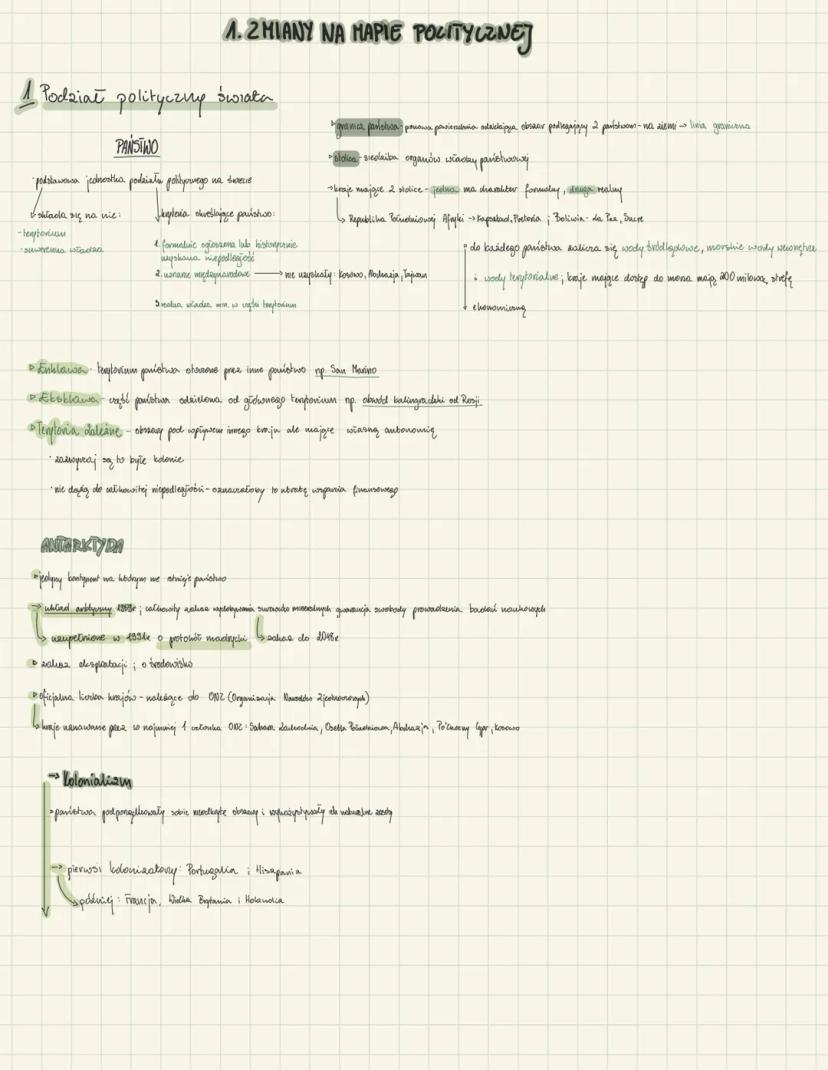 1. ZMIANY NA MAPIE POLITYCZNEJ
1 Podział polityczny świata
PAŃSTWO
· podstawowa jednostka podziału politycznego na świecie
składa się na nie:
- terytorium
- suwerenna władza
kryteria określające państwo:
1. formalnie ogłoszona lub historycznie
uzyskana niepodległość
2. uznanie międzynarodowe → nie uzyskały: Kosowo, Abchazja, Tajwan
3. realna władza min. w części terytorium
granica państwa - pionowa powierzchnia oddzielająca obszar podlegający 2 państwom - na ziemi → linia graniczna
stolica - siedziba organów władzy państwowej
→ kraje mające 2 stolice - jedna ma charakter formalny, druga realny
Republika Południowej Afryki → Kapsztad, Pretoria ; Boliwia - La Paz, Sucre
do każdego państwa zalicza się wody śródlądowe, morskie wody wewnętrzne
i wody terytorialne; kraje mające dostęp do morza mają 200 milową strefę
ekonomiczną
Enklawa - terytorium państwa otoczone przez inne państwo np. San Marino
Eksklawa - część państwa oddzielona od głównego terytorium np. obwód kaliningradzki od Rosji
Terytoria zależne - obszary pod wpływem innego kraju ale mające własną autonomię
· zazwyczaj są to byłe kolonie
· nie dążą do całkowitej niepodległości - oznaczałoby to utratę wsparcia finansowego
ANTARKTYDA
jedyny kontynent na którym nie istnieje państwo
→ układ ; całkowity zakaz wydobywania surowców mineralnych gwarancja swobody prowadzenia badań naukowych
uzupełnione w 1991r o protokół madrycki
zakaz do 2048r
zakaz eksploatacji ; o środowisko
oficjalna liczba krajów - należące do ONZ (Organizacja Narodów Zjednoczonych)
kraje uznawane przez co najmniej 1 członka ONZ: Sahara Zachodnia, Osetia Południowa, Abchazja, Północny Cypr, Kosowo
→ Kolonializm
państwa podporządkowały sobie nieodkryte obszary i wykorzystywały ich naturalne zasoby
→ pierwsi kolonizatorzy: Portugalia i Hiszpania
później: Francja, Wielka Brytania i Holandia